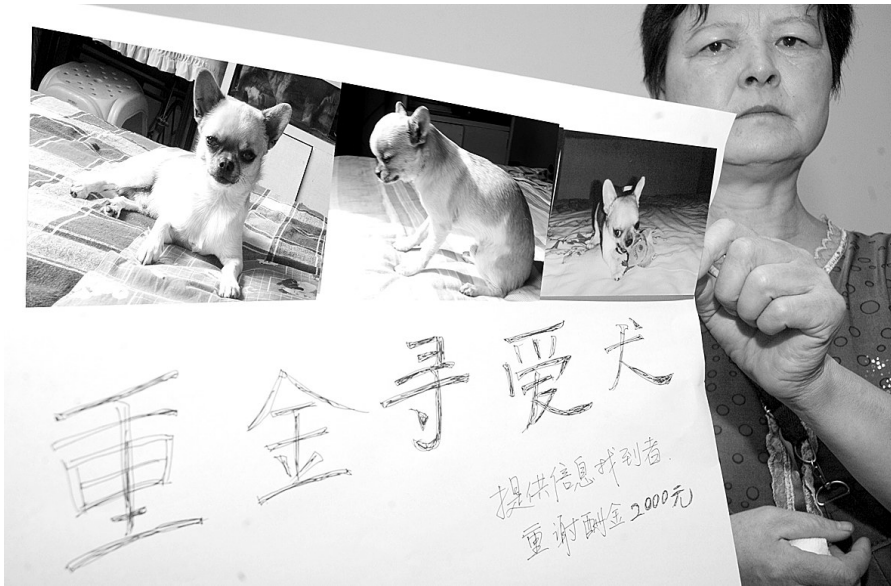 重金寻爱犬
提供信息找到者.
重谢酬金2000元